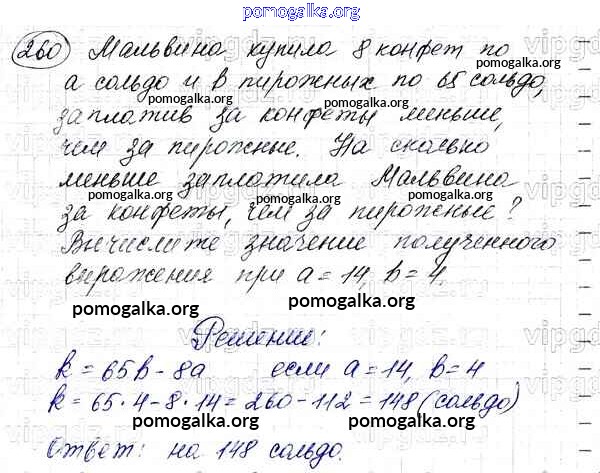 pomogalka.org
260 Мальвина купила 8 конфет по
а сольдо и в пирожных по 65 сольдо,
pomogalka.org pomogalka.org
заплатив за конфеты меньше,
чем за пирожные. На сколько
pomogalka.org pomogalka.org
меньше заплатила Мальвина
за конфеты, чем за пирожные?
pomogalka.org pomogalka.org
Вычислите значение полученного
выражения при а = 14, в = 4.
pomogalka.org pomogalka.org
Решение:
k = 65в - 8а если а = 14, в = 4
pomogalka.org pomogalka.org
k = 65 · 4 - 8 · 14 = 260 - 112 = 148 (сольдо)
Ответ: на 148 сольдо.
pomogalka.org